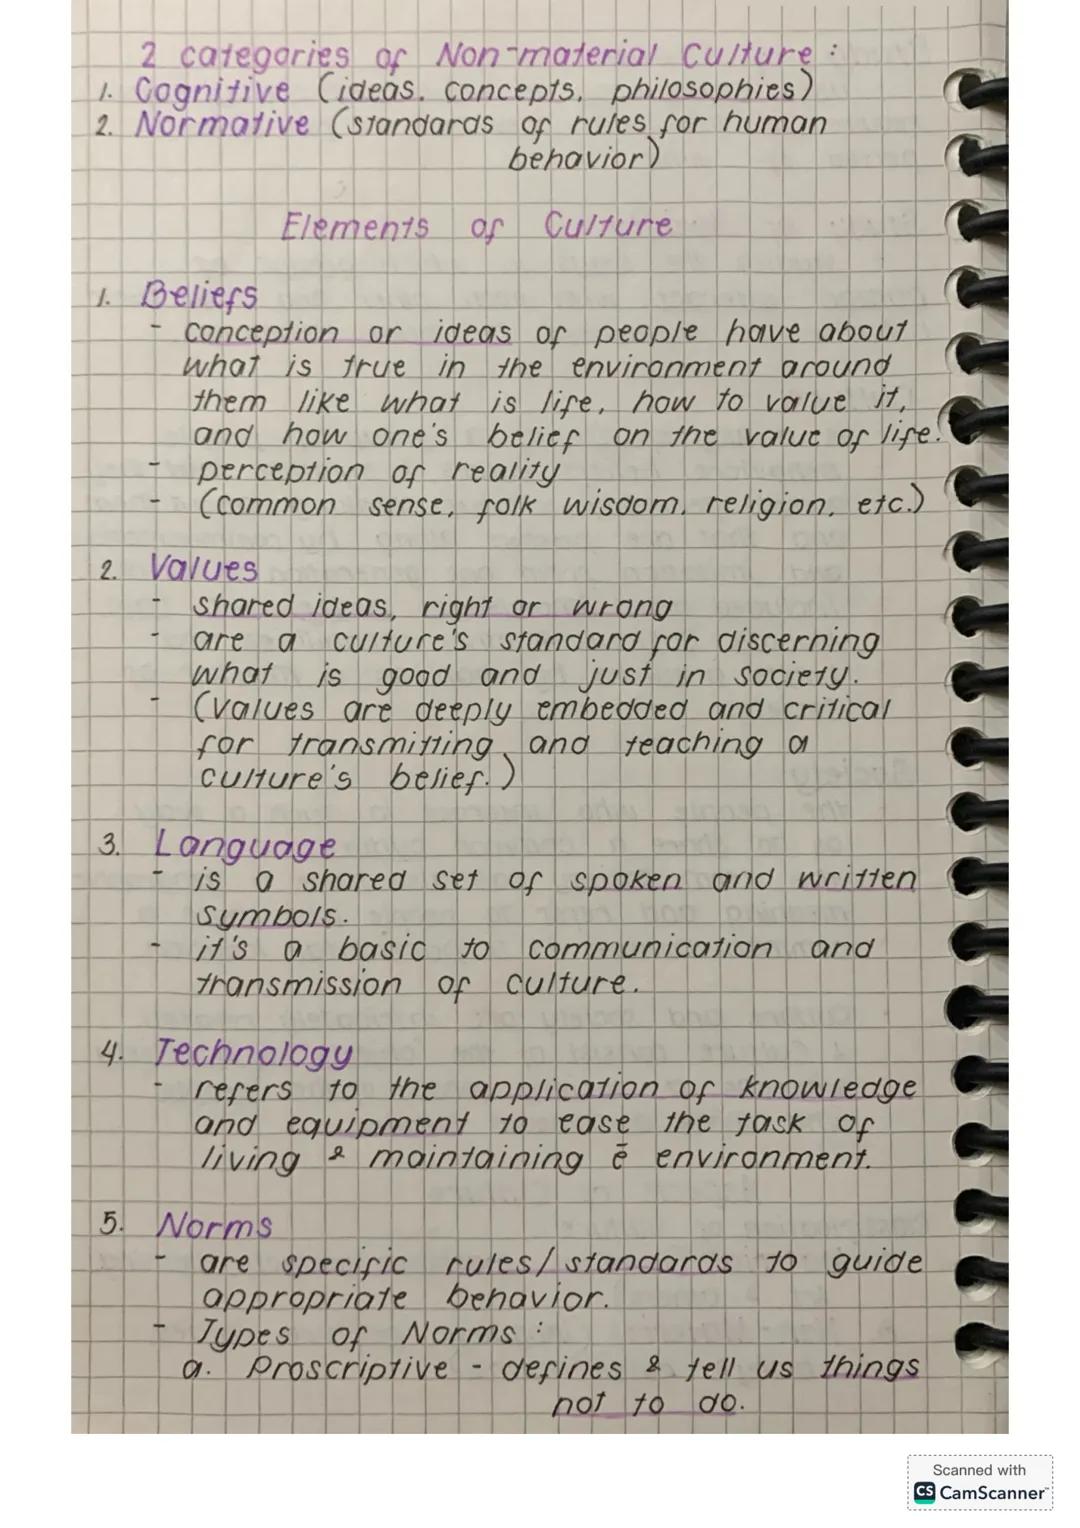 2 categories of Non-material Culture :
1. Cognitive (ideas. concepts, philosophies)
2. Normative (standards of rules for human
behavior)
Elements of Culture
1. Beliefs
- conception or ideas of people have about
what is true in the environment around
them like what is life, how to value it,
and how one's belief on the value of life.
- perception of reality
- (common sense, folk wisdom, religion, etc.)
2. Values
- shared ideas, right or wrong
- are a culture's standard for discerning
what is good and just in society.
- (values are deeply embedded and critical
for transmitting, and teaching a
culture's belief.)
3. Language
- is a shared set of spoken and written
symbols.
- it's a basic to communication and
transmission of culture.
4. Technology
- refers to the application of knowledge
and equipment to ease the task of
living & maintaining ē environment.
5. Norms
- are specific rules/standards to guide
appropriate behavior.
- Types of Norms :
a. Proscriptive - defines & tell us things
not to do.
Scanned with
CS CamScanner